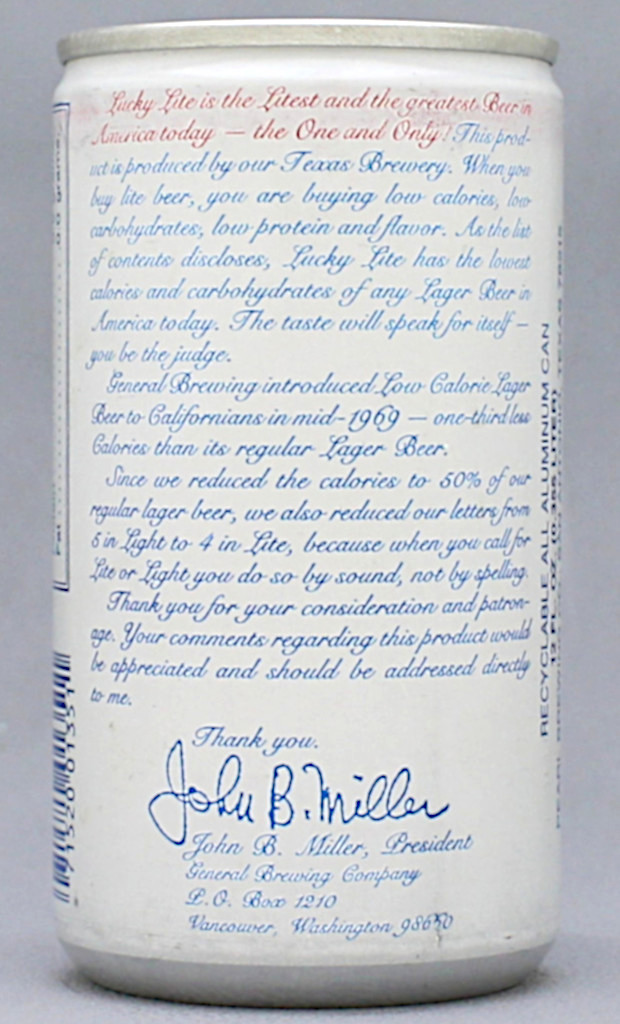 Lucky Lite is the Litest and the greatest Beer in
America today — the One and Only! This prod-
uct is produced by our Texas Brewery. When you
buy lite beer, you are buying low calories, low
carbohydrates, low protein and flavor. As the list
of contents discloses, Lucky Lite has the lowest
calories and carbohydrates of any Lager Beer in
America today. The taste will speak for itself —
you be the judge.
General Brewing introduced Low Calorie Lager
Beer to Californians in mid-1969 — one-third less
Calories than its regular Lager Beer.
Since we reduced the calories to 50% of our
regular lager beer, we also reduced our letters from
5 in Light to 4 in Lite, because when you call for
Lite or Light you do so by sound, not by spelling.
Thank you for your consideration and patron-
age. Your comments regarding this product would
be appreciated and should be addressed directly
to me.
Thank you.
John B. Miller
John B. Miller, President
General Brewing Company
P.O. Box 1210
Vancouver, Washington 98650
RECYCLABLE ALL ALUMINUM CAN
12 FL. OZ. (0.355 LITER)
PEARL BREWING SAN ANTONIO, TEXAS
0.0 grams
Fat
71520 01351